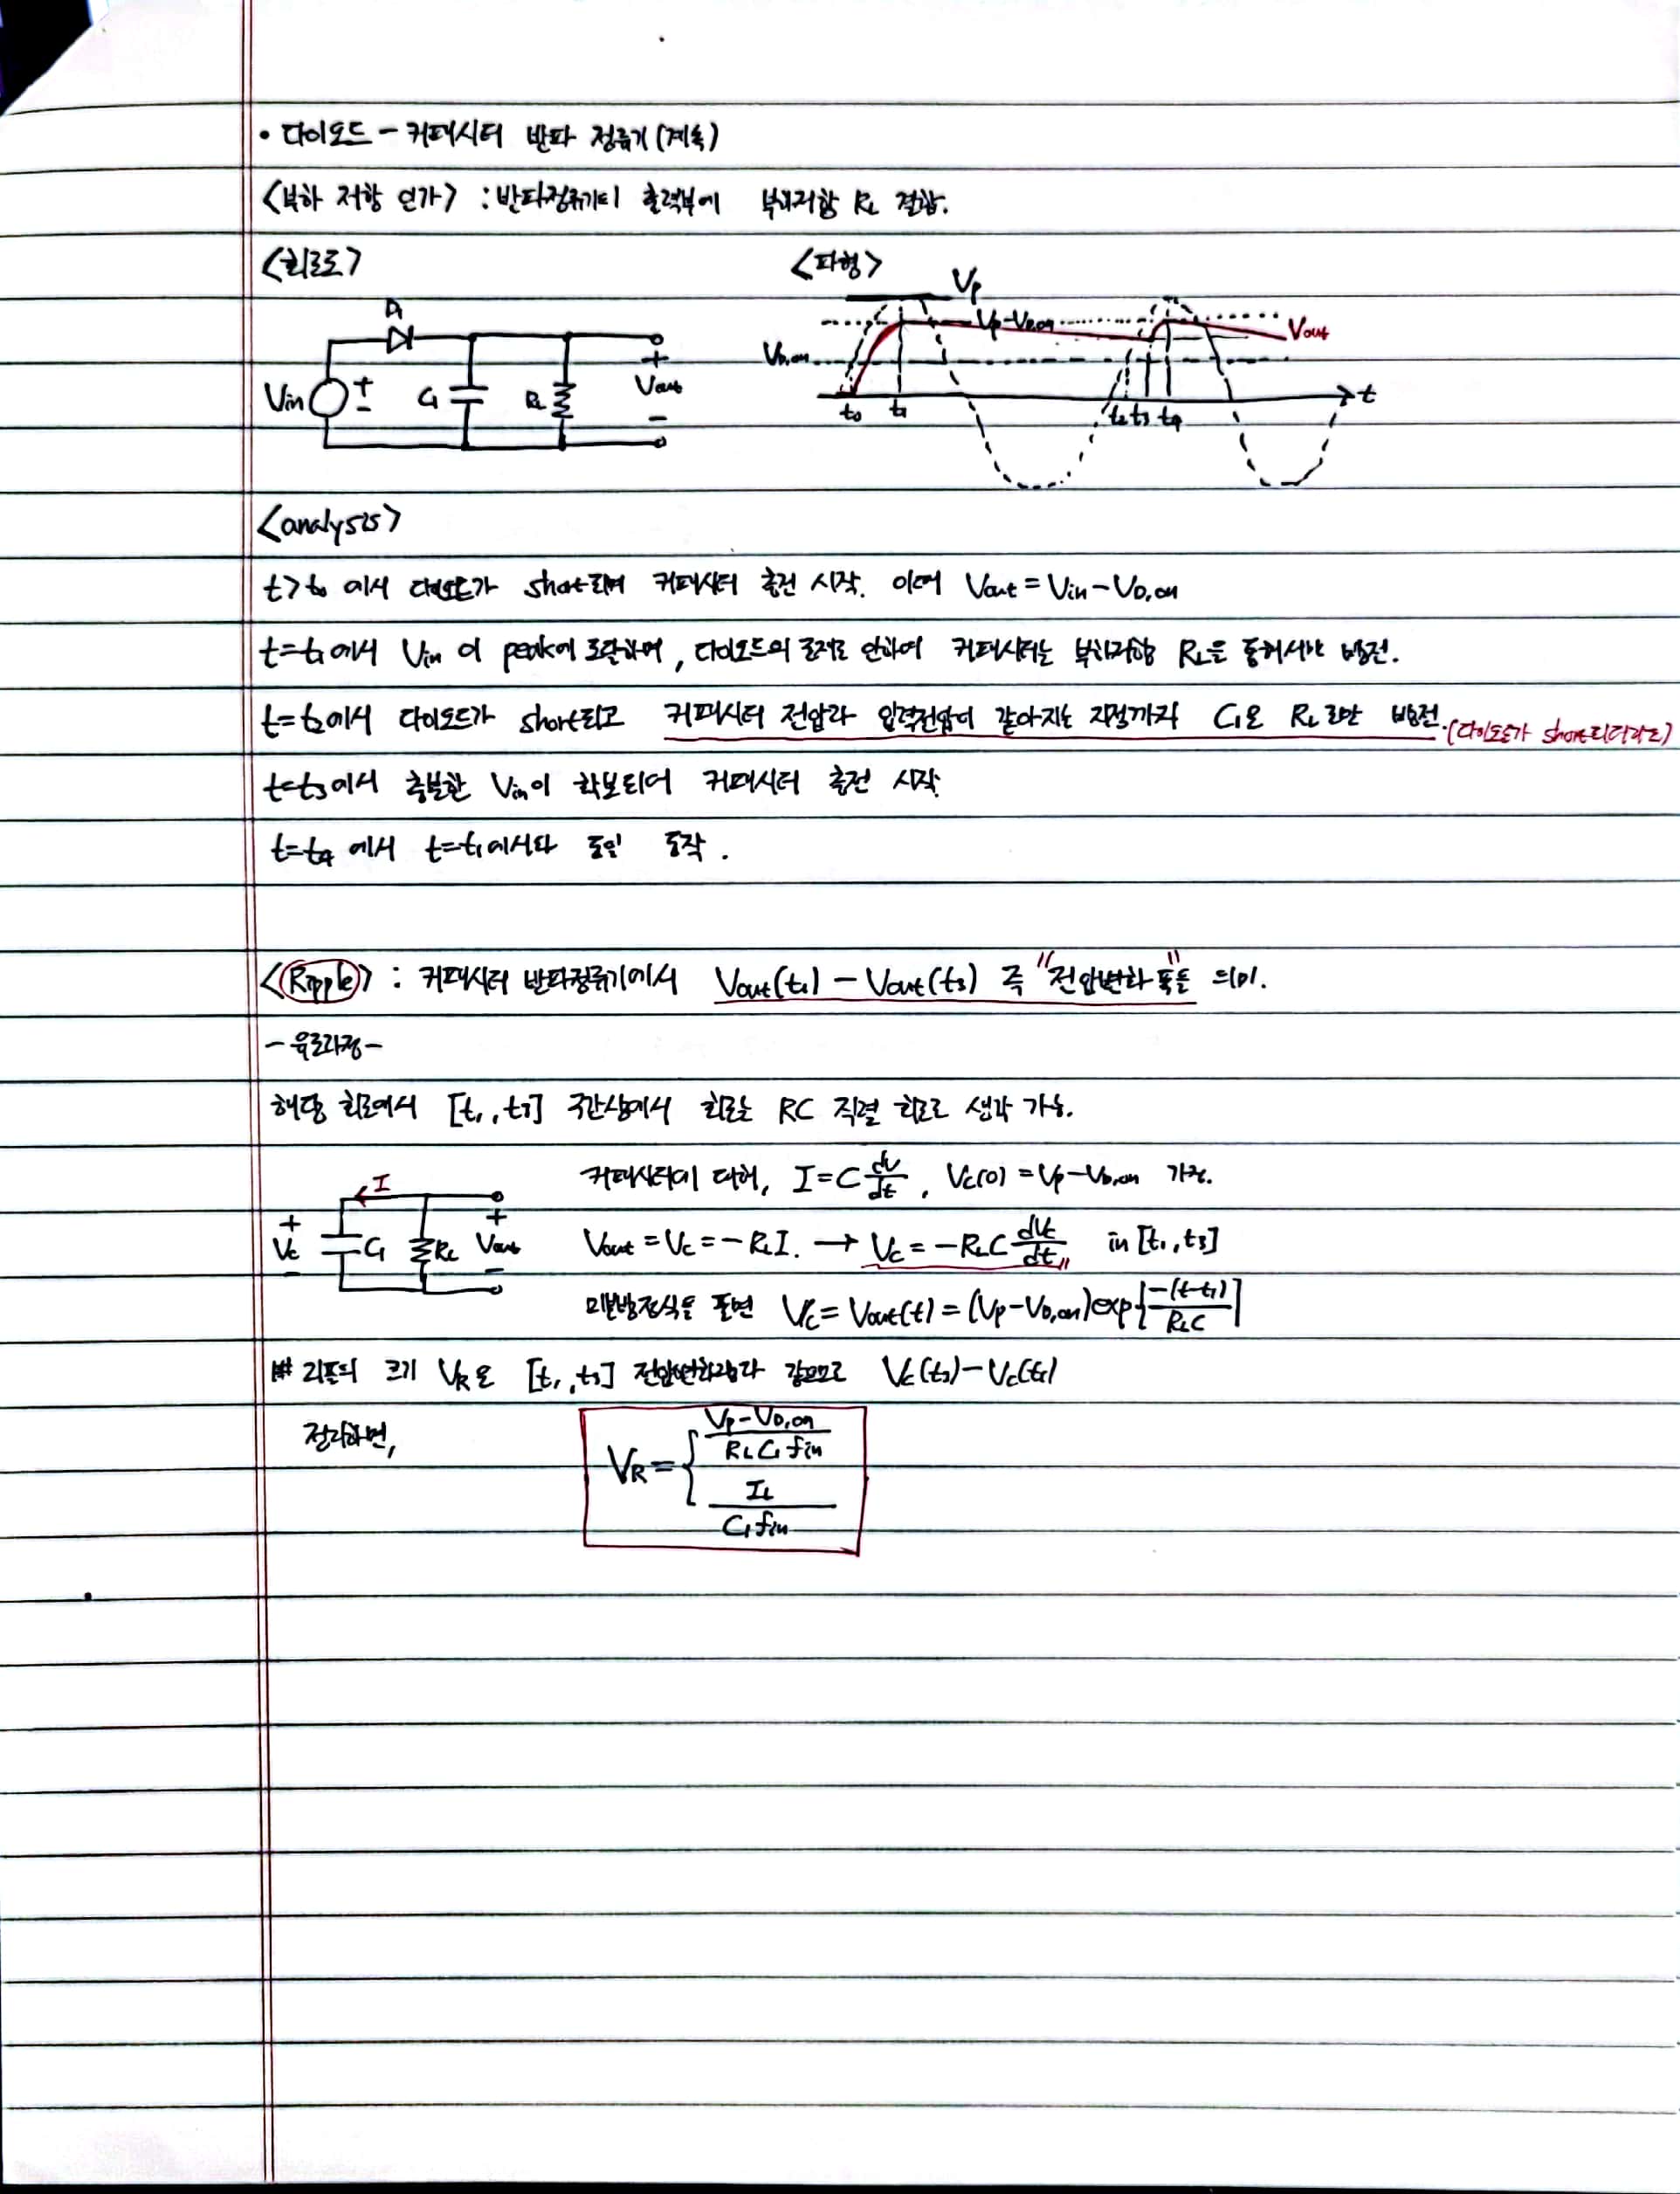 • 다이오드 - 커패시터 반파 정류기 (계속)
<부하 저항 인가> : 반파정류기의 출력부에 부하저항 RL 결합.
<회로도> <파형>
D1
Vin + - C1 RL + Vout -
Vp
Vp-VD,on
Vout
VD,on
t0 t1 t2 t3 t4 t
<analysis>
t>t0 에서 다이오드가 short되며 커패시터 충전 시작. 이때 Vout = Vin - VD,on
t=t1에서 Vin 이 peak에 도달하며, 다이오드의 로 인하여 커패시터는 부하저항 RL을 통해서만 방전.
t=t2에서 다이오드가 short되고 커패시터 전압과 입력전압이 같아지는 지점까지 C1은 RL로만 방전. (다이오드가 short되더라도)
t=t3에서 충분한 Vin이 확보되어 커패시터 충전 시작.
t=t4 에서 t=t1에서와 동일 동작.
<Ripple> : 커패시터 반파정류기에서 Vout(t1) - Vout(t3) 즉 "전압변화 폭"을 의미.
- 유도과정 -
해당 회로에서 [t1, t3] 구간상에서 회로는 RC 직렬 회로로 생각 가능.
I
+ Vc - C1 RL + Vout -
커패시터에 대해, I = C dv/dt, Vc(0) = Vp - VD,on 가정.
Vout = Vc = -RL I. → Vc = -RL C dVc/dt in [t1, t3]
미분방정식을 풀면 Vc = Vout(t) = (Vp - VD,on) exp[-(t-t1)/RLC]
## 리플의 크기 VR은 [t1, t3] 전압변화량과 같으므로 Vc(t3) - Vc(t1)
정리하면,
VR = { Vp - VD,on / RL C1 fin
IL / C1 fin